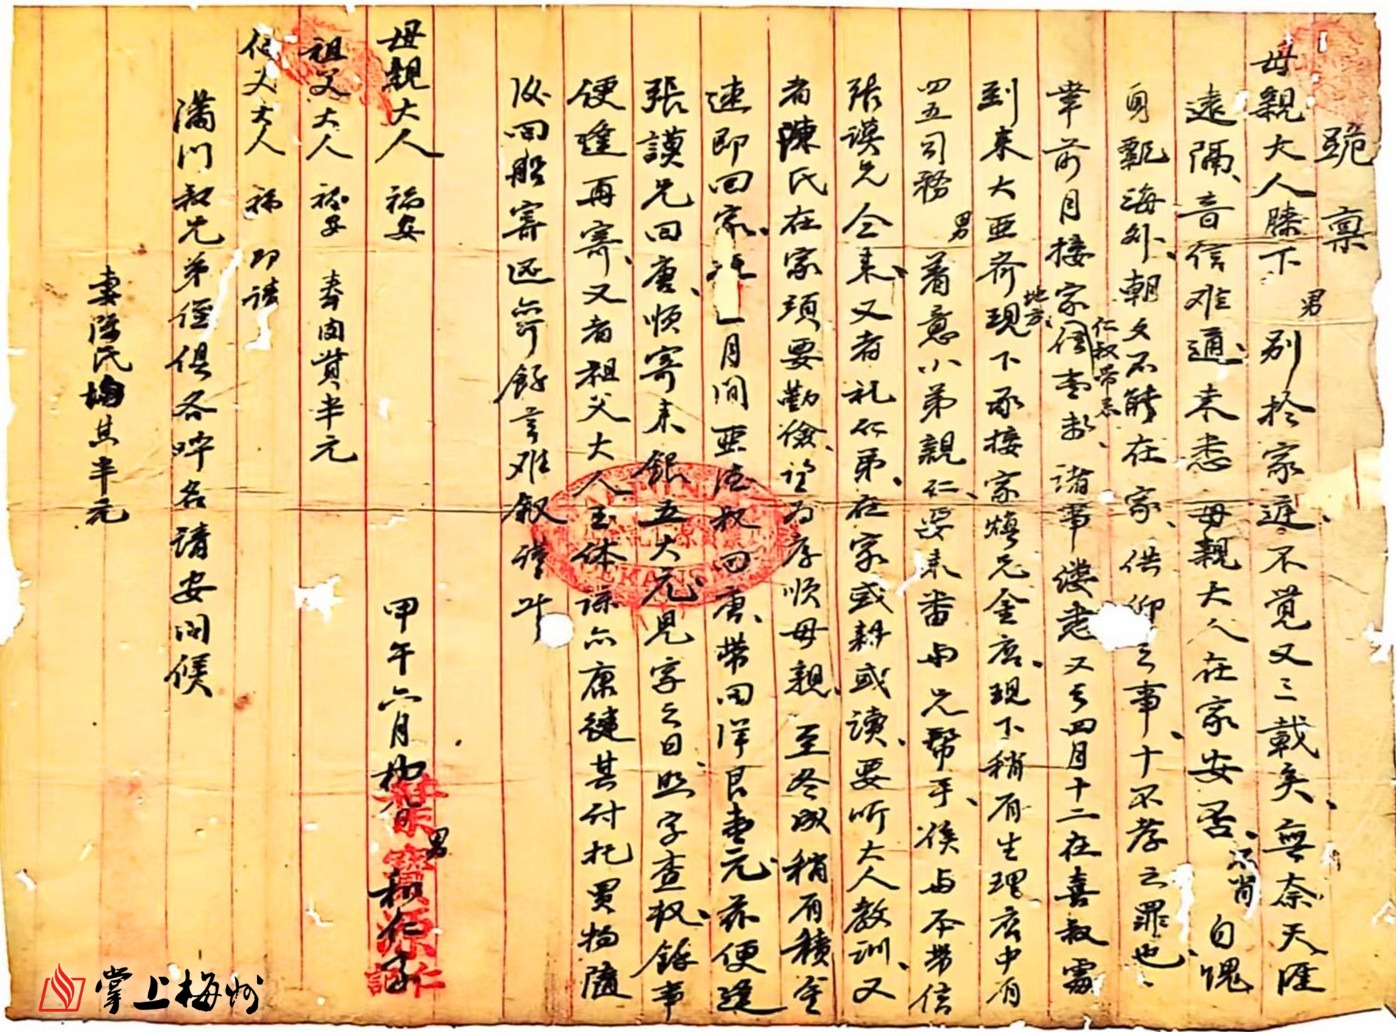 跪禀
母親大人膝下 男 别於家庭不覚又三載矣、無奈天涯
遠隔、音信难通、未悉母親大人在家安否、不肖自愧
身羁海外、朝夕不能在家、供仰之事、十不孝之罪也、
幸前月接家信壹封 仁叔带來、諸事缕悉又云四月十二在喜叔處
到来大亚齐地方、现下承接家煥兄金店、現下稍有生理店中有
四五司務 男 着意小弟親仁、要来番由兄幫手、候与不带信
張謨兄仝来、又者礼仁弟、在家或耕或读、要听大人教训、又
者陳氏在家、须要勤儉、孝順母親、至冬成稍有積金
速即回家、月间亚浩叔回唐、带回洋艮壹元、兹便逢
張謨兄回唐、順寄来銀五大元、見字之日、照字查收、餘事
便逢再寄、又者祖父大人玉体諒亦康健其付托買物隨
後回船寄返、餘言难叙、謹此
母親大人 福安
祖父大人 福安 壽面費半元
伯父大人 福 即请
满门叔兄弟侄俱各呼名請安问候
妻陳氏 其半元
甲午六月初九日 男 和仁 字
榮寶源
仁記
掌上梅州